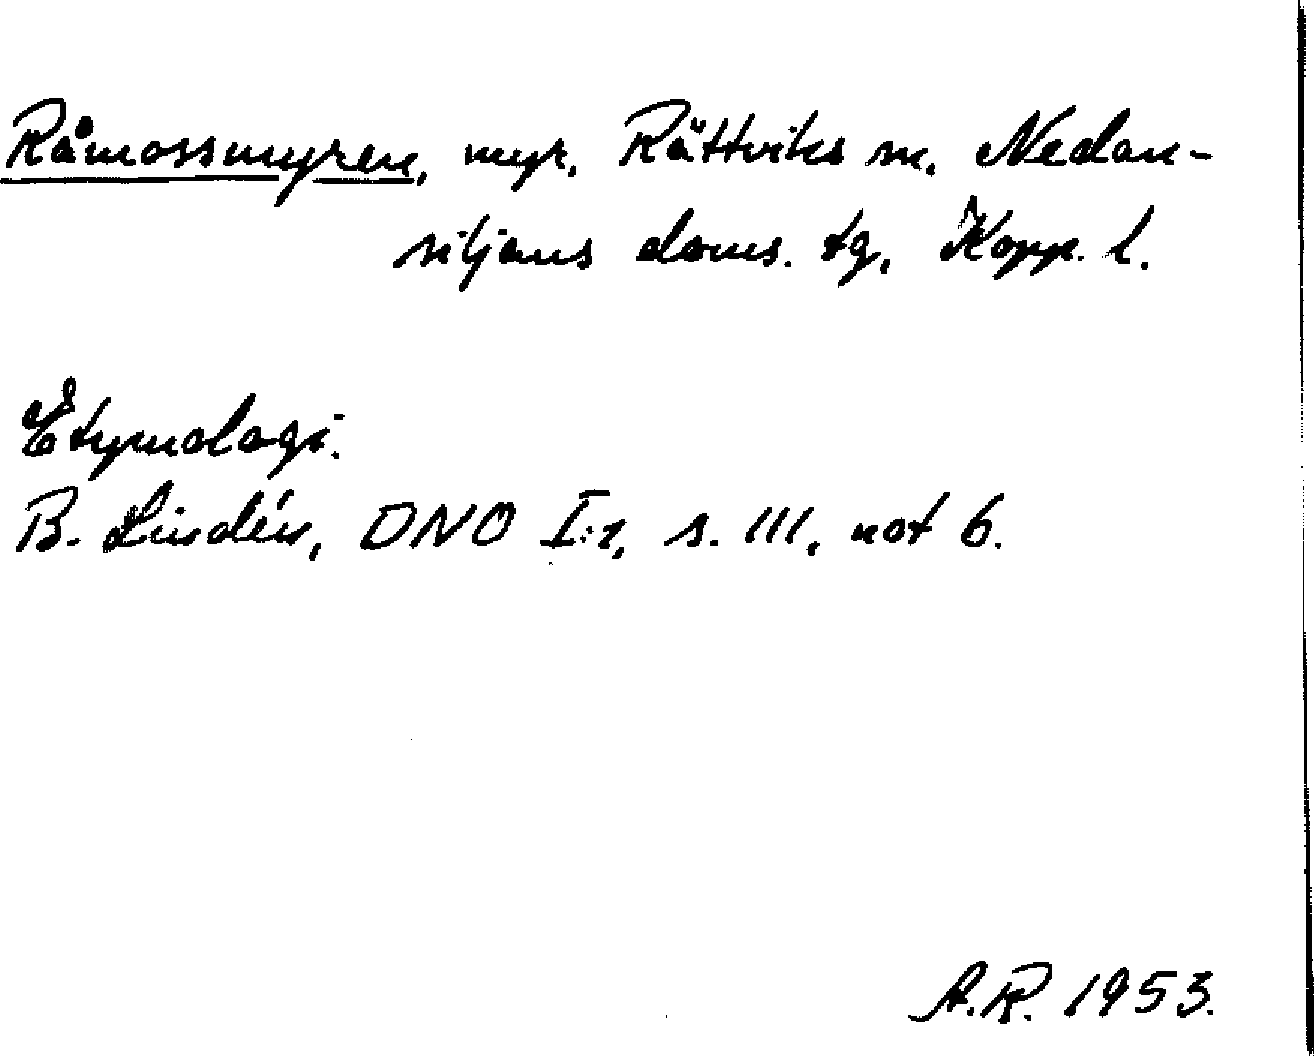 Råmossmyren, myr, Rättviks sn, Nedan-
siljans doms. tg, Kopp. l.
Etymologi:
B. Lindén, DNO I:1, s. 111, not 6.
A.R. 1953.